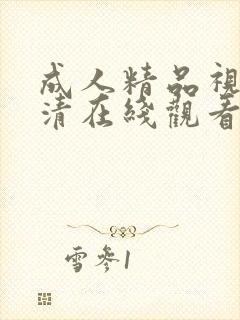 成人精品視
清在綫觀看
雪參1